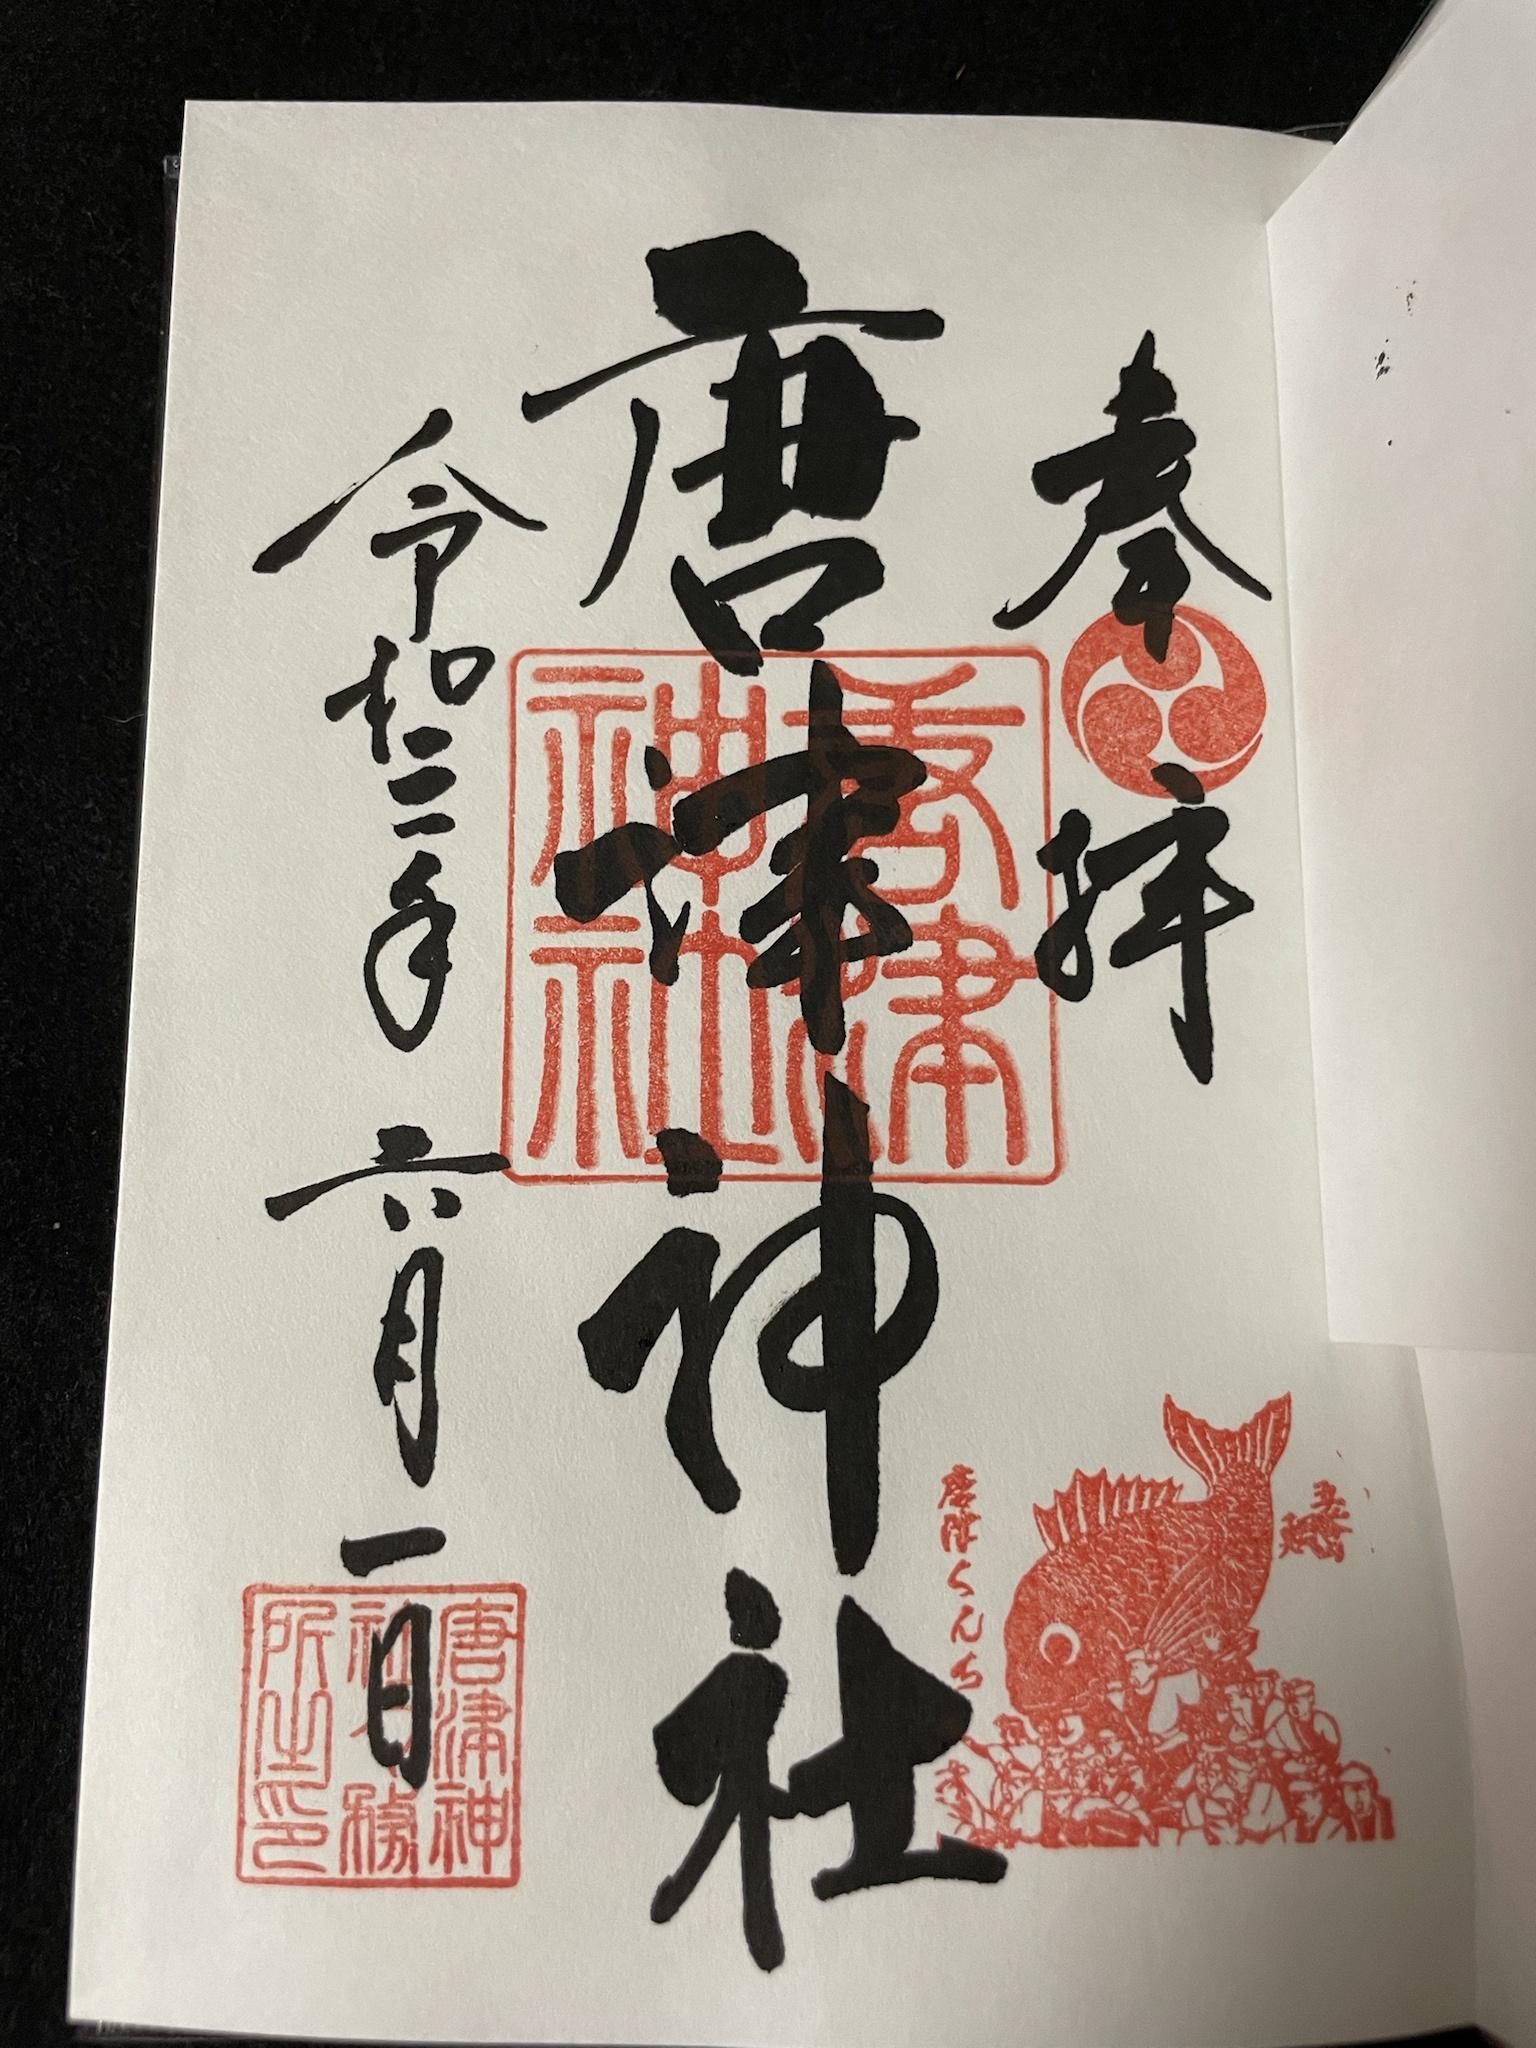 奉拝
唐津神社
令和二年六月一日
唐津
神社
唐津くんち
唐津神
社務
所之印